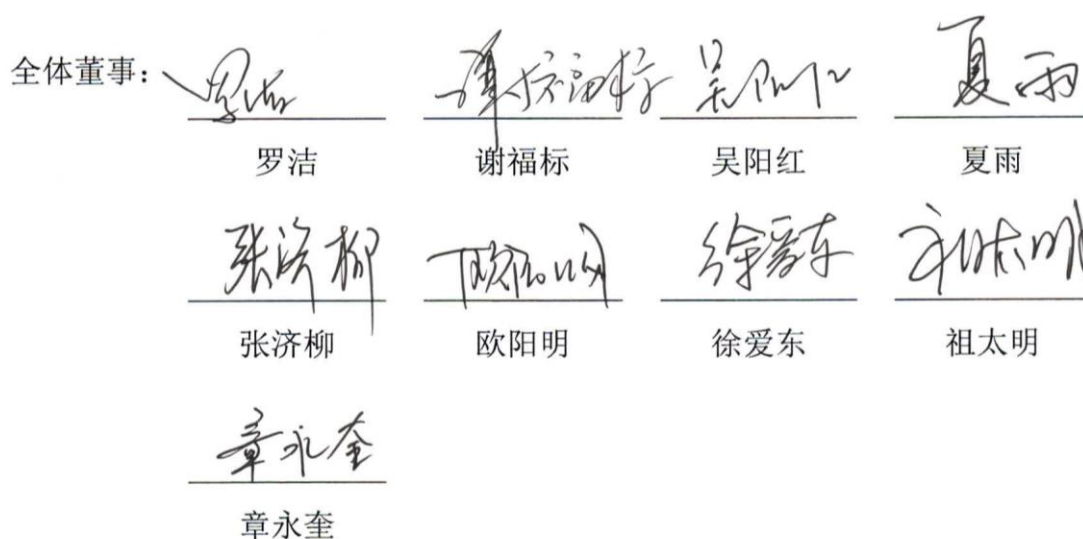 全体董事：
罗洁 谢福标 吴阳红 夏雨
罗洁 谢福标 吴阳红 夏雨
张济柳 欧阳明 徐爱东 祖太明
张济柳 欧阳明 徐爱东 祖太明
章永奎
章永奎